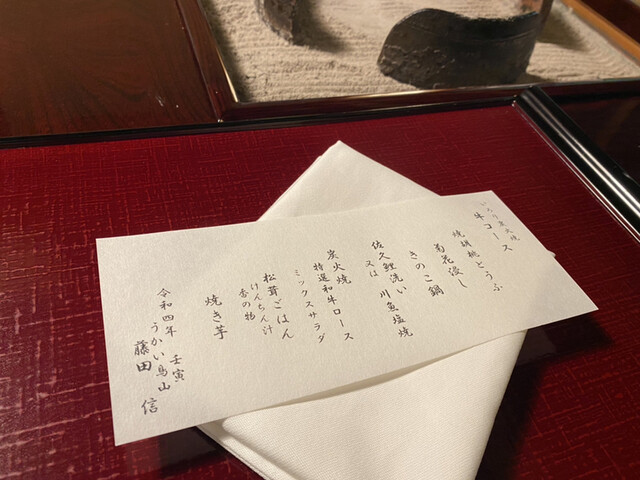 いろり炭火焼
牛コース
焼胡桃どうふ
菊花浸し
きのこ鍋
佐久鯉洗い
又は 川魚塩焼
炭火焼
特選和牛ロース
ミックスサラダ
松茸ごはん
けんちん汁
香の物
焼き芋
令和四年 壬寅
うかい鳥山
藤田 信